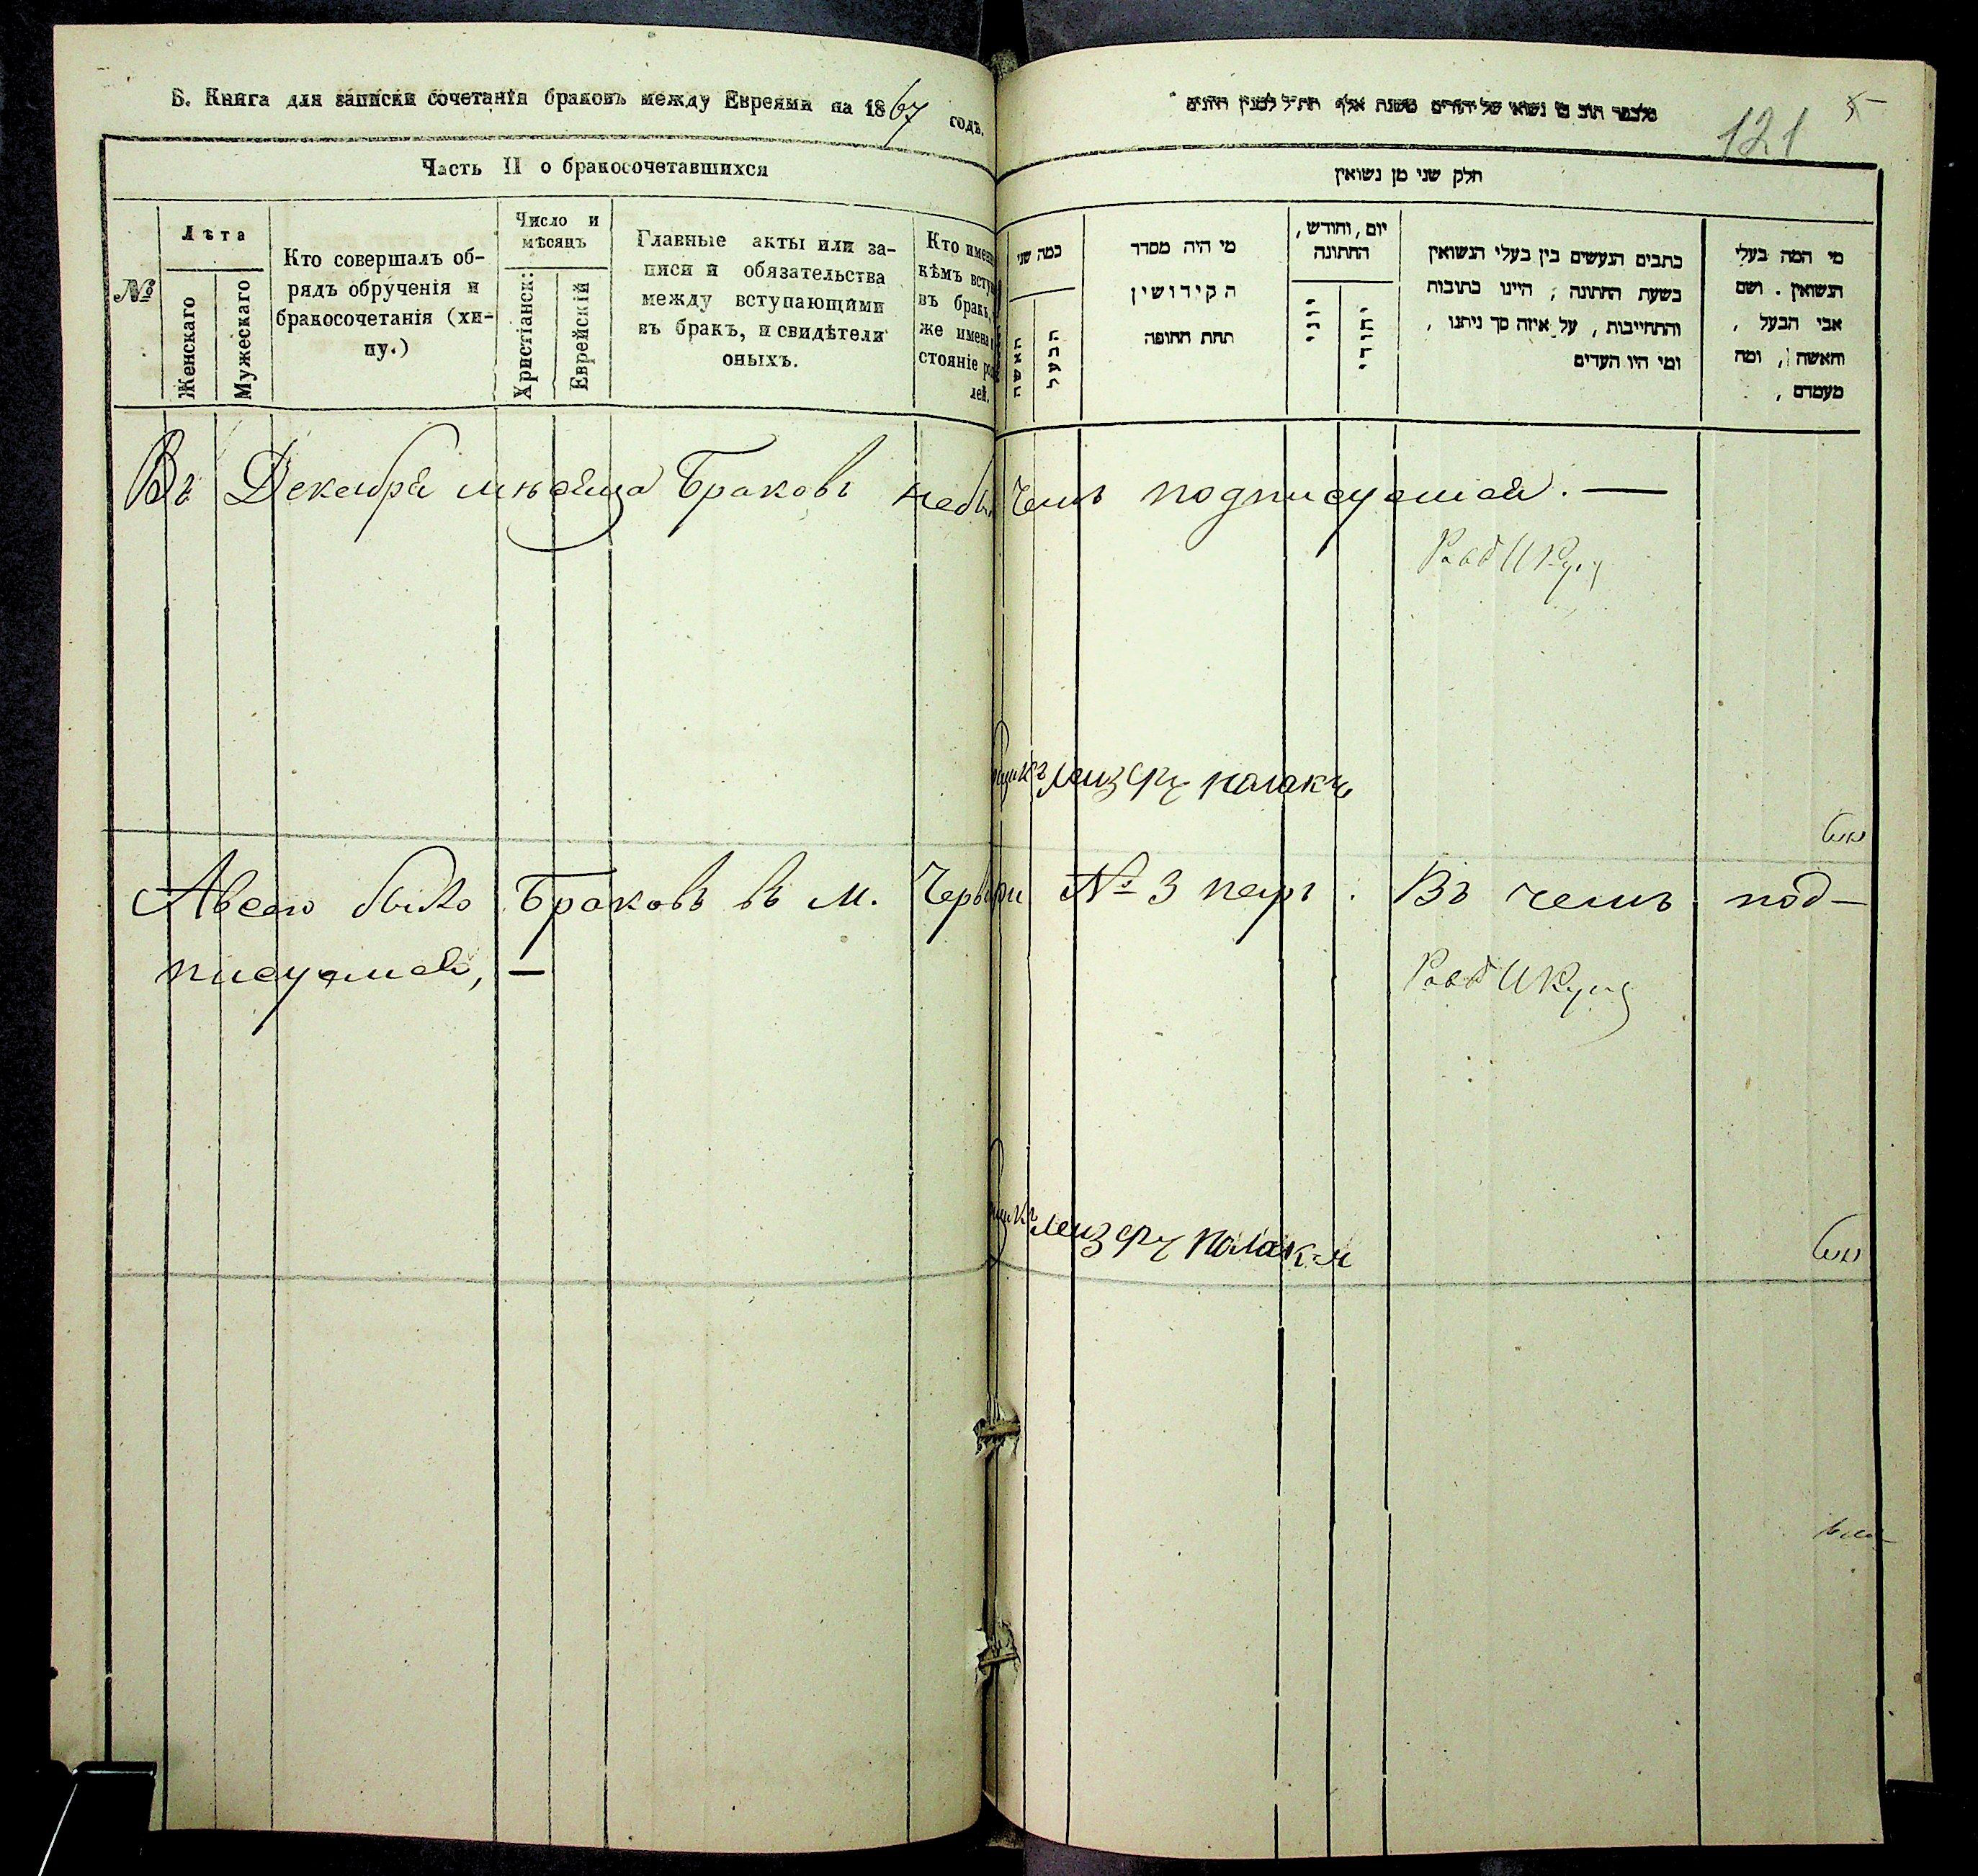 Б. Книга для записки сочетанія браковъ между Евреями на 1867 годъ.
Часть II о бракосочетавшихся
№
Лѣта
Женскаго
Мужескаго
Кто совершалъ об-
рядъ обрученія и
бракосочетанія (хи-
пу.)
Число и
мѣсяцъ
Христіанск:
Еврейскій
Главные акты или за-
писи и обязательства
между вступающими
въ бракъ, и свидѣтели
оныхъ.
Кто имен
кѣмъ всту
въ бракъ,
же имена
стояніе ро
лей.
121
חלק שני מן נשואין
כמה שני
האשה
הבעל
מי היה מסדר
הקידושין
תחת החופה
יום, וחודש,
החתונה
יוני
יהודי
כתבים הנעשים בין בעלי הנשואין
בשעת החתונה, היינו כתובות
והתחייבות, על איזה סך ניתנו,
ומי היו העדים
מי המה בעלי
הנשואין. ושם
אבי הבעל,
והאשה, ומה
מעמדם,
Въ Декабрѣ мѣсяца Браковъ небы чемъ подписуемся. —
Раб И Кун
Лейзеръ полякъ
Авсего было Браковъ въ м. Червери № 3 пары. Въ чемъ под-
писуемся, —
Раб И Кун
Лейзеръ полякъ